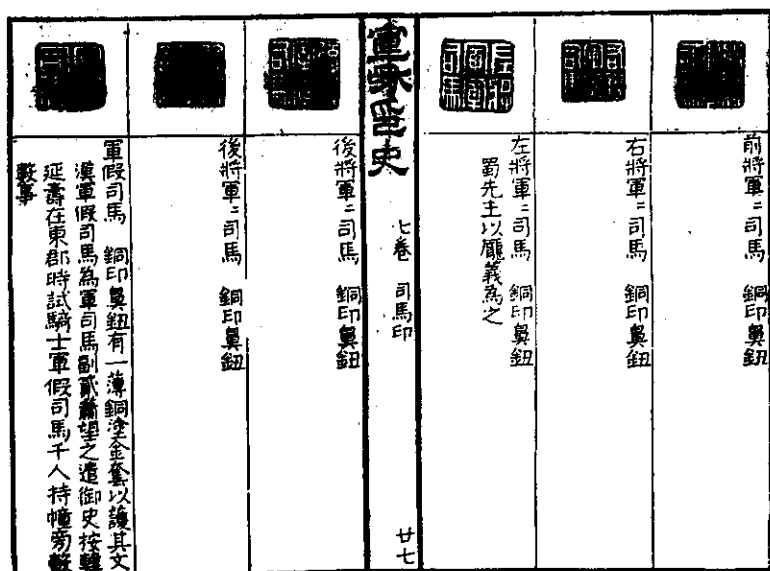 前將軍〻司馬　銅印鼻鈕
右將軍〻司馬　銅印鼻鈕
左將軍〻司馬　銅印鼻鈕
蜀先主以龐義為之
宣和印史　七卷　司馬印　廿七
後將軍〻司馬　銅印鼻鈕
後將軍〻司馬　銅印鼻鈕
軍假司馬　銅印鼻鈕有一薄銅塗金奩以護其文
漢軍假司馬為軍司馬副貳蕭望之遣御史按韓
延壽在東郡時試騎士軍假司馬千人持幢旁轂
事